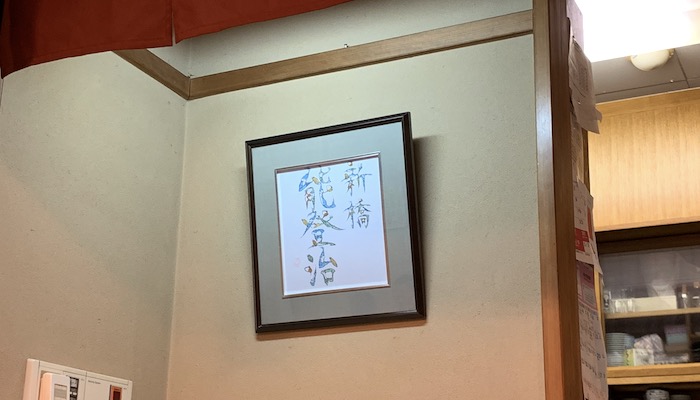 新橋
能登治